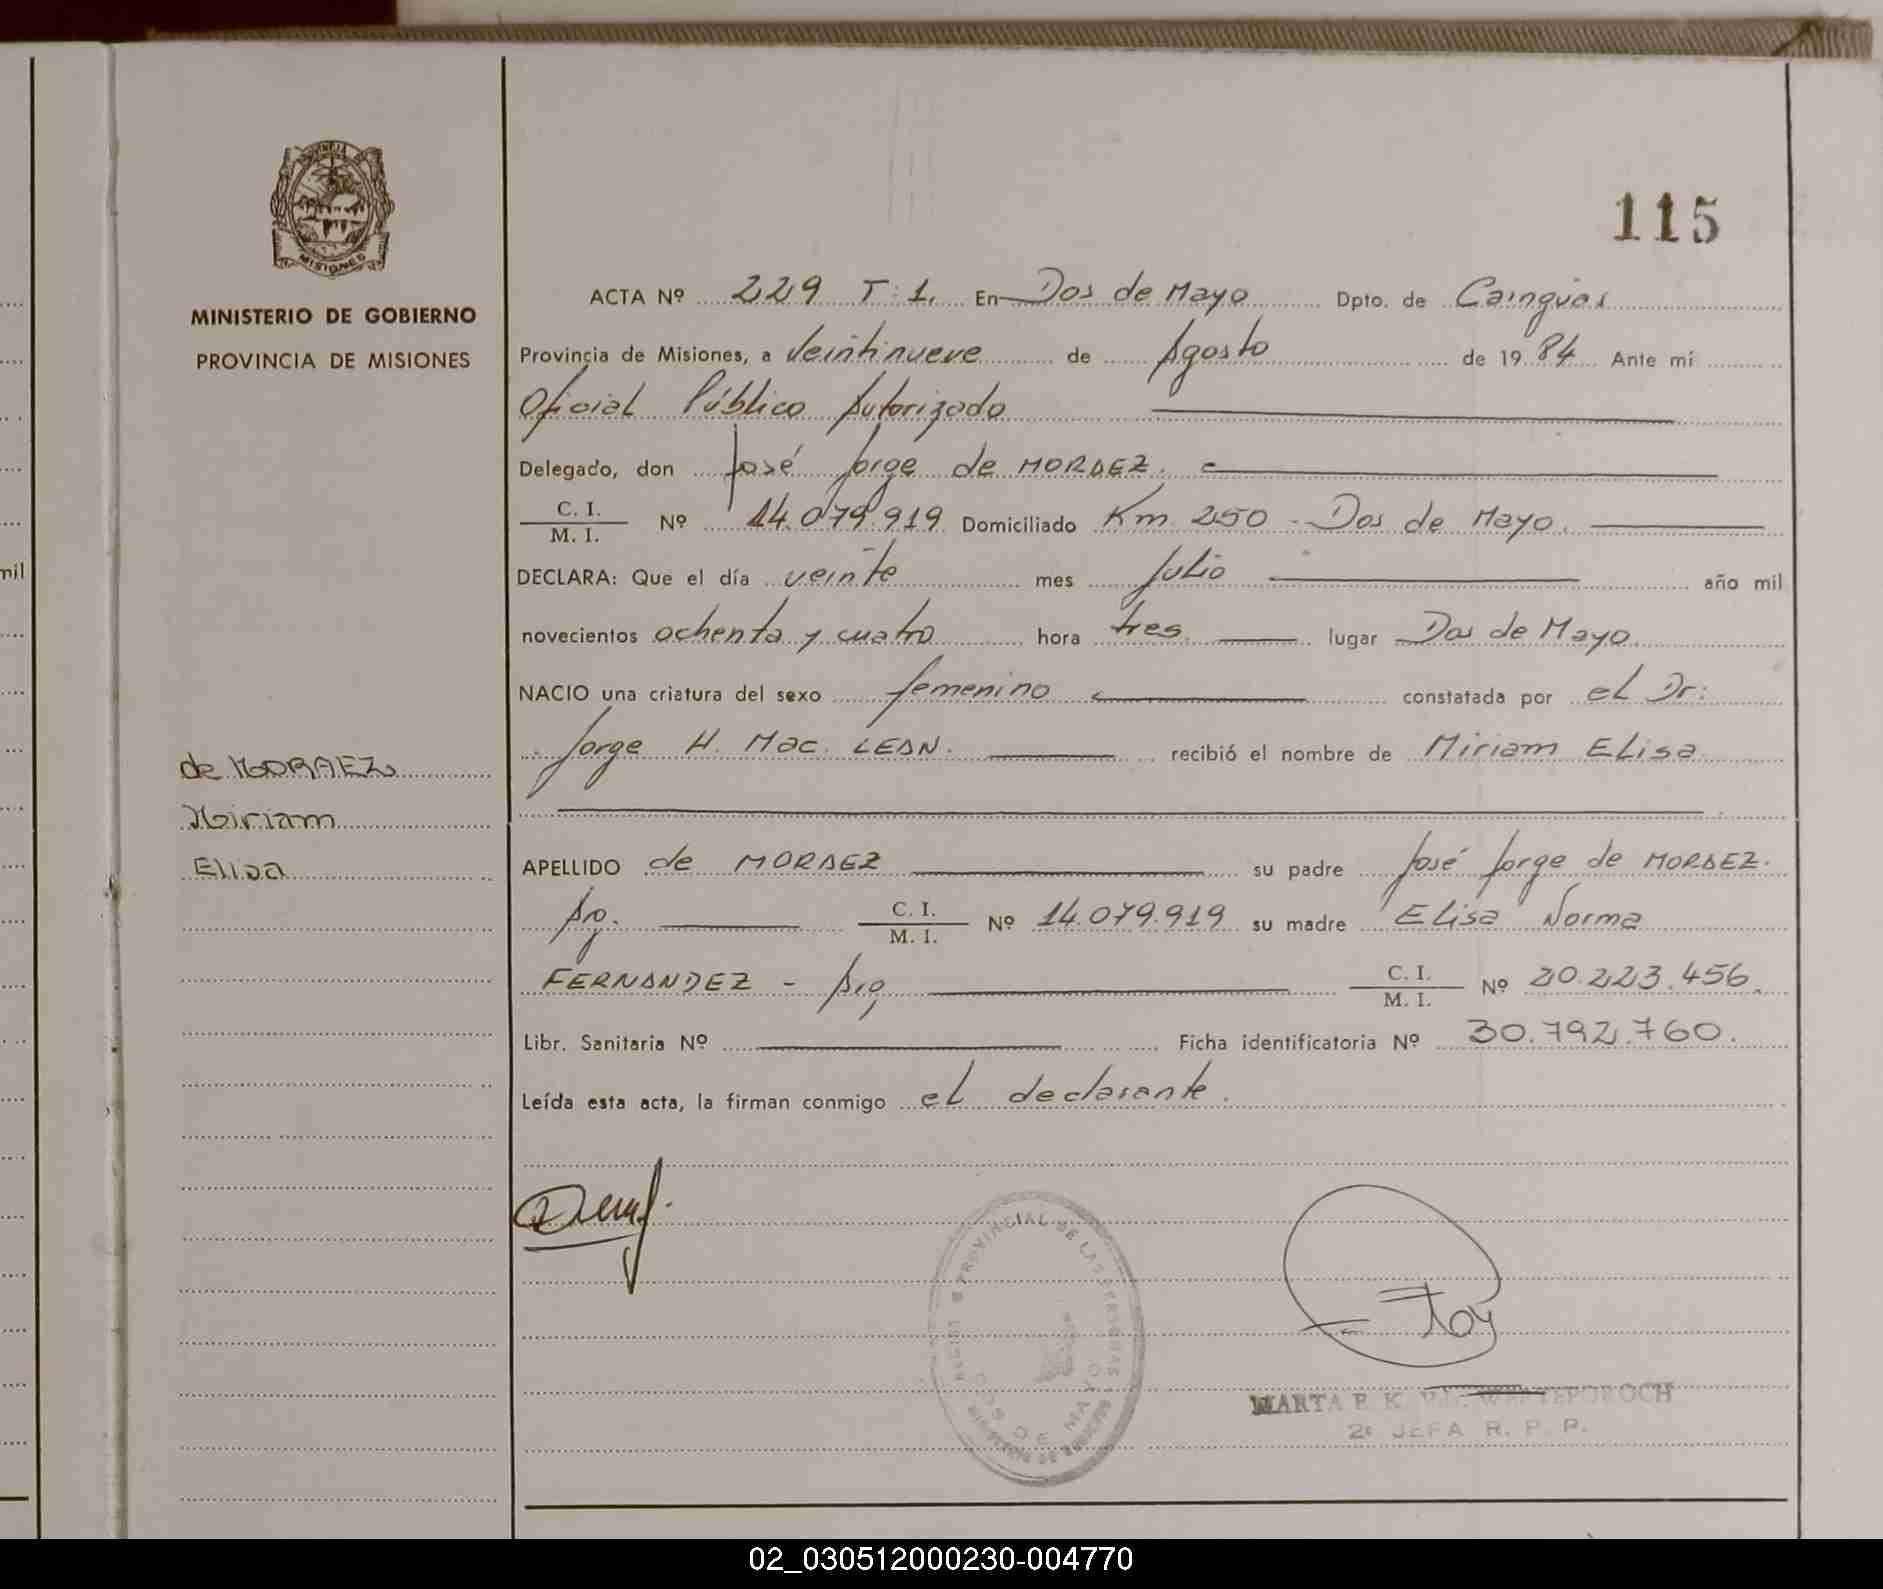 PROVINCIA
MISIONES
MINISTERIO DE GOBIERNO
PROVINCIA DE MISIONES
mil
de MORAEZ
Miriam
Elisa
115
ACTA Nº 229 T: 1. En Dos de Mayo Dpto. de Cainguas
Provincia de Misiones, a Veintinueve de Agosto de 1984 Ante mí
Oficial Público Autorizado
Delegado, don José Jorge de MORAEZ.
C. I.
M. I. Nº 14.079.919 Domiciliado Km 250 - Dos de Mayo.
DECLARA: Que el día veinte mes Julio año mil
novecientos ochenta y cuatro hora tres. lugar Dos de Mayo.
NACIO una criatura del sexo femenino constatada por el Dr:
Jorge H. Mac. LEAN. recibió el nombre de Miriam Elisa
APELLIDO de MORAEZ su padre José Jorge de MORAEZ.
Arg. C. I.
M. I. Nº 14.079.919 su madre Elisa Norma
FERNANDEZ - Arg, C. I.
M. I. Nº 20.223.456.
Libr. Sanitaria Nº Ficha identificatoria Nº 30.792.760.
Leída esta acta, la firman conmigo el declarante.
PROVINCIAL DE LAS PERSONAS
DOS DE MAYO
MARTA
2ª JEFA R. P. P.
02_030512000230-004770